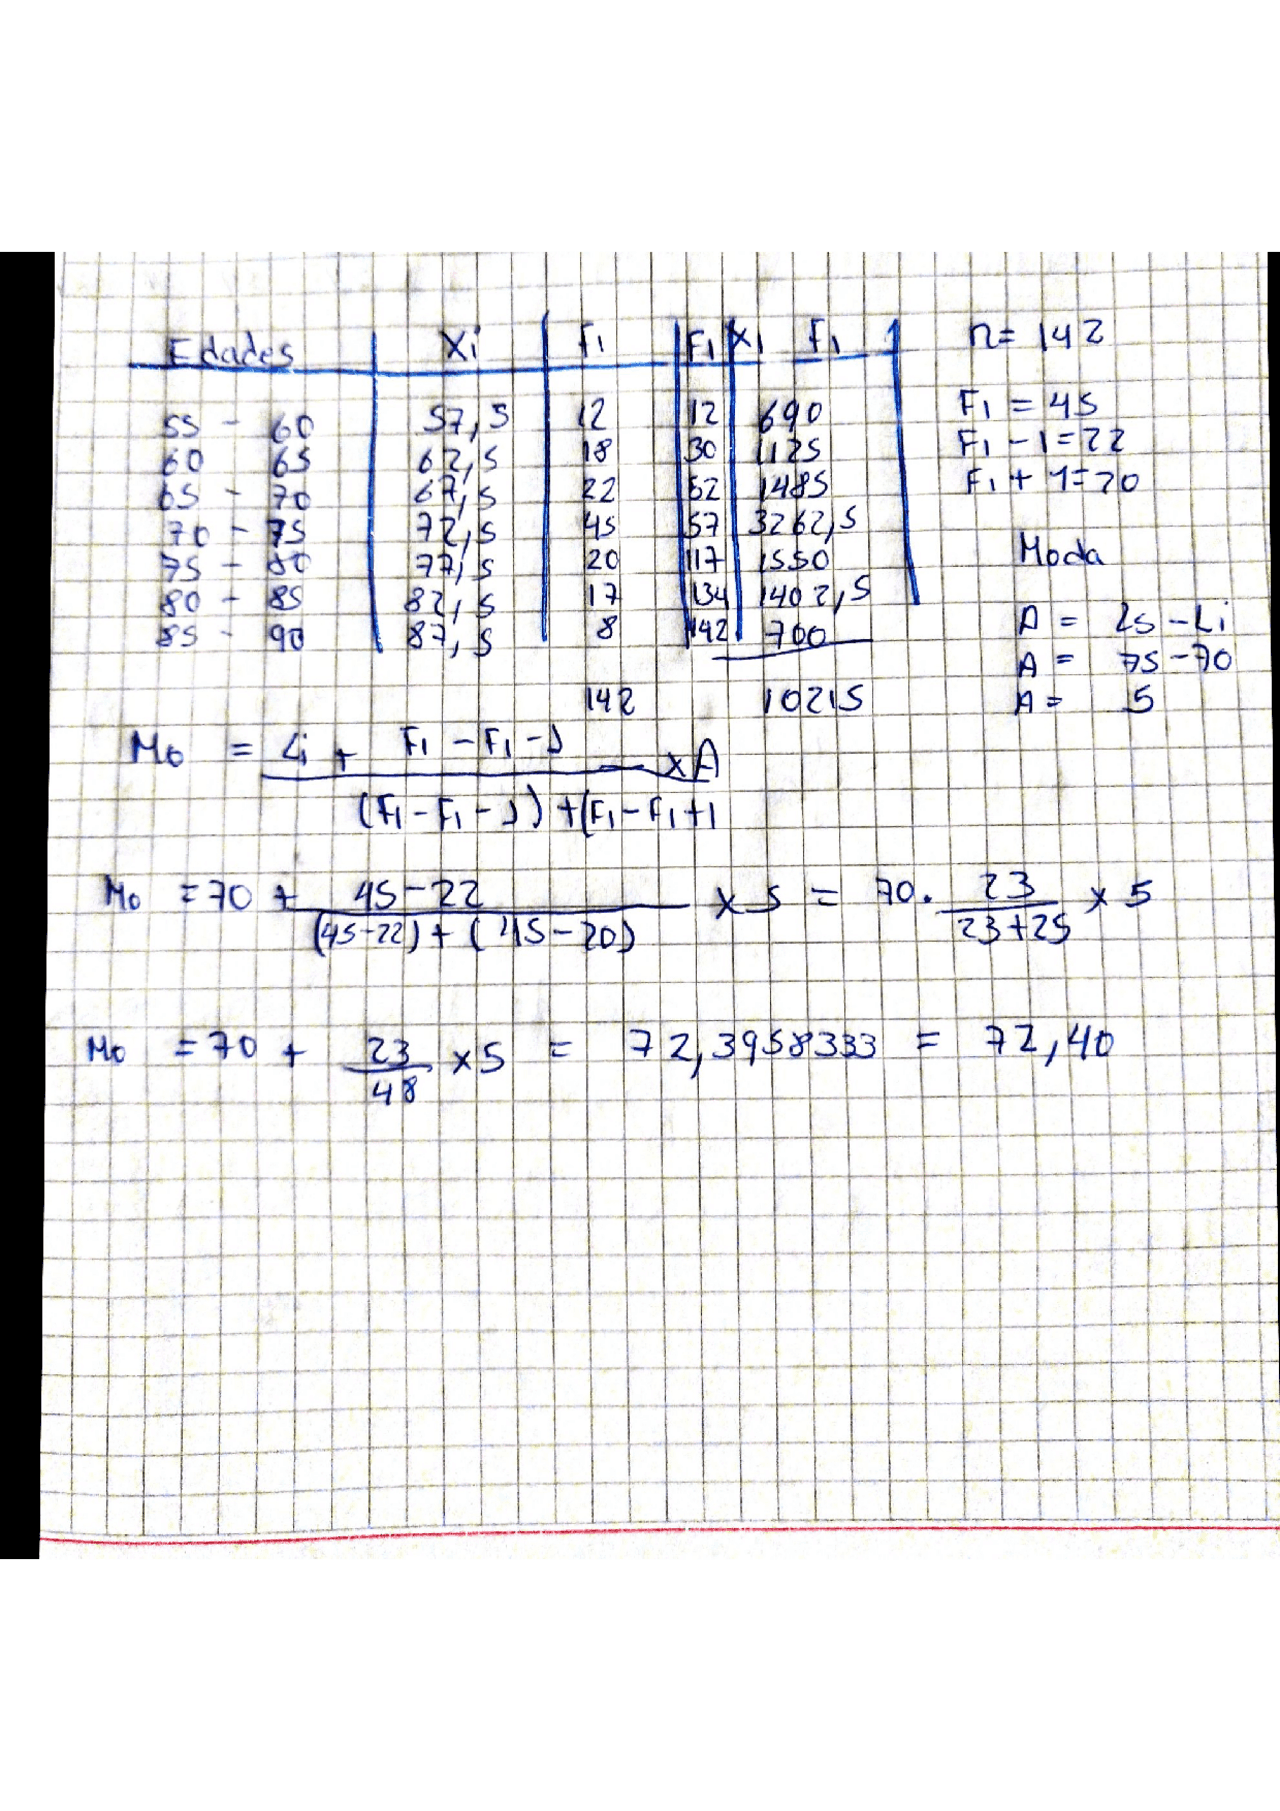 Edades Xi F1 F1 X1 F1 n= 142
55 - 60 57,5 12 12 690 F1 = 45
60 65 62,5 18 30 1125 F1 - 1=22
65 - 70 67,5 22 52 1485 F1 + 1=20
70 - 75 72,5 45 57 3262,5
75 - 80 77,5 20 117 1550 Moda
80 - 85 82,5 17 134 1402,5
85 - 90 87,5 8 142 700 A = Ls - Li
A = 75-70
142 10215 A = 5
Mo = Li + F1 - F1 - 1 x A
(F1 - F1 - 1) + (F1 - F1 + 1
Mo = 70 + 45-22 x 5 = 70. 23 x 5
(45-22) + (45-20) 23+25
Mo = 70 + 23 x 5 = 72,3958333 = 72,40
48